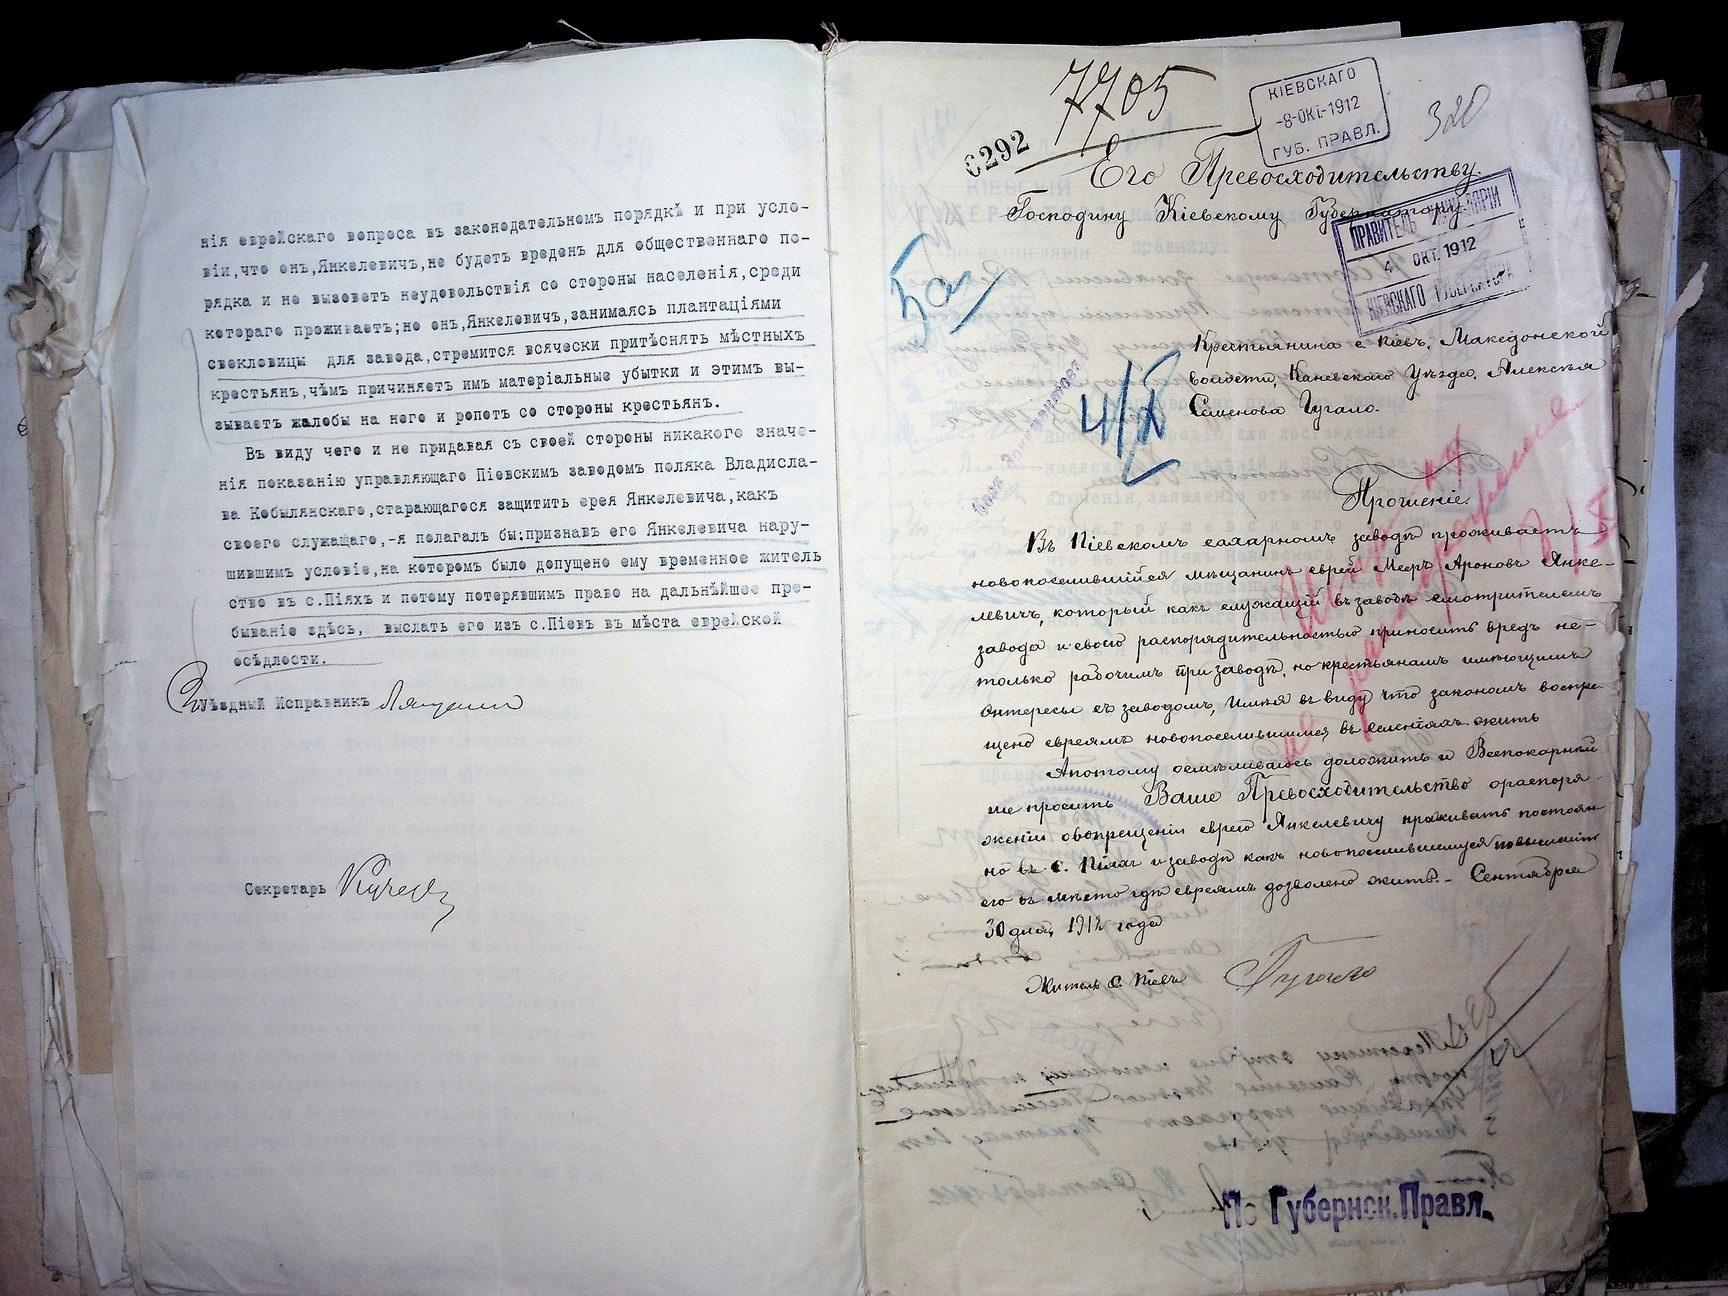 нія еврейскаго вопроса въ законодательномъ порядкѣ и при усло-
віи, что онъ, Янкелевичъ, не будетъ вреденъ для общественнаго по-
рядка и не вызоветъ неудовольствія со стороны населенія, среди
котораго проживаетъ; но онъ, Янкелевичъ, занимаясь плантаціями
свекловицы для завода, стремится всячески притѣснять мѣстныхъ
крестьянъ, чѣмъ причиняетъ имъ матеріальные убытки и этимъ вы-
зываетъ жалобы на него и ропотъ со стороны крестьянъ.
Въ виду чего и не придавая съ своей стороны никакого значе-
нія показанію управляющаго Піевскимъ заводомъ поляка Владисла-
ва Кобылянскаго, старающагося защитить ерея Янкелевича, какъ
своего служащаго,-я полагалъ бы: признавъ его Янкелевича нару-
шившимъ условіе, на которомъ было допущено ему временное житель
ство въ с. Піяхъ и потому потерявшимъ право на дальнѣйшее пре-
бываніе здѣсь, выслать его изъ с. Піевъ въ мѣста еврейской
осѣдлости.
Уѣздный Исправникъ
Секретарь
7705
6292
КІЕВСКАГО
-8-ОКТ-1912
ГУБ. ПРАВЛ.
320
Его Превосходительству
Господину Кіевскому Губернатору
ПРАВИТЕЛЬ КАНЦЕЛЯРІИ
4 ОКТ. 1912
КІЕВСКАГО ГУБЕРНАТОРА
5а
4/X
Крестьянина с. Піевъ, Македонской
волости, Каневскаго Уѣзда, Алексѣя
Семенова Гугало.
Прошеніе.
Въ Піевскомъ сахарномъ заводѣ проживаетъ
новопоселившійся мѣщанинъ еврей Мееръ Ароновъ Янке-
левичъ, который какъ служащій въ заводѣ смотрителемъ
завода и своею распорядительностью приноситъ вредъ не-
только рабочимъ при заводѣ, но крестьянамъ имѣющимъ
интересы съ заводомъ, Имѣя въ виду что закономъ воспре-
щено евреямъ новопоселившимся въ селеніяхъ жить
Апотому осмѣливаюсь доложить и Всепокорнѣй
ше просить Ваше Превосходительство ораспоря-
женіи овопрещеніи еврею Янкелевичу проживать постоян-
но въ с. Піяхъ и заводѣ какъ новопоселившемуся
его въ мѣсто гдѣ евреямъ дозволено жить.- Сентября
30 дня, 1912 года
Житель с. Піевъ Гугало
По Губернск. Правл.